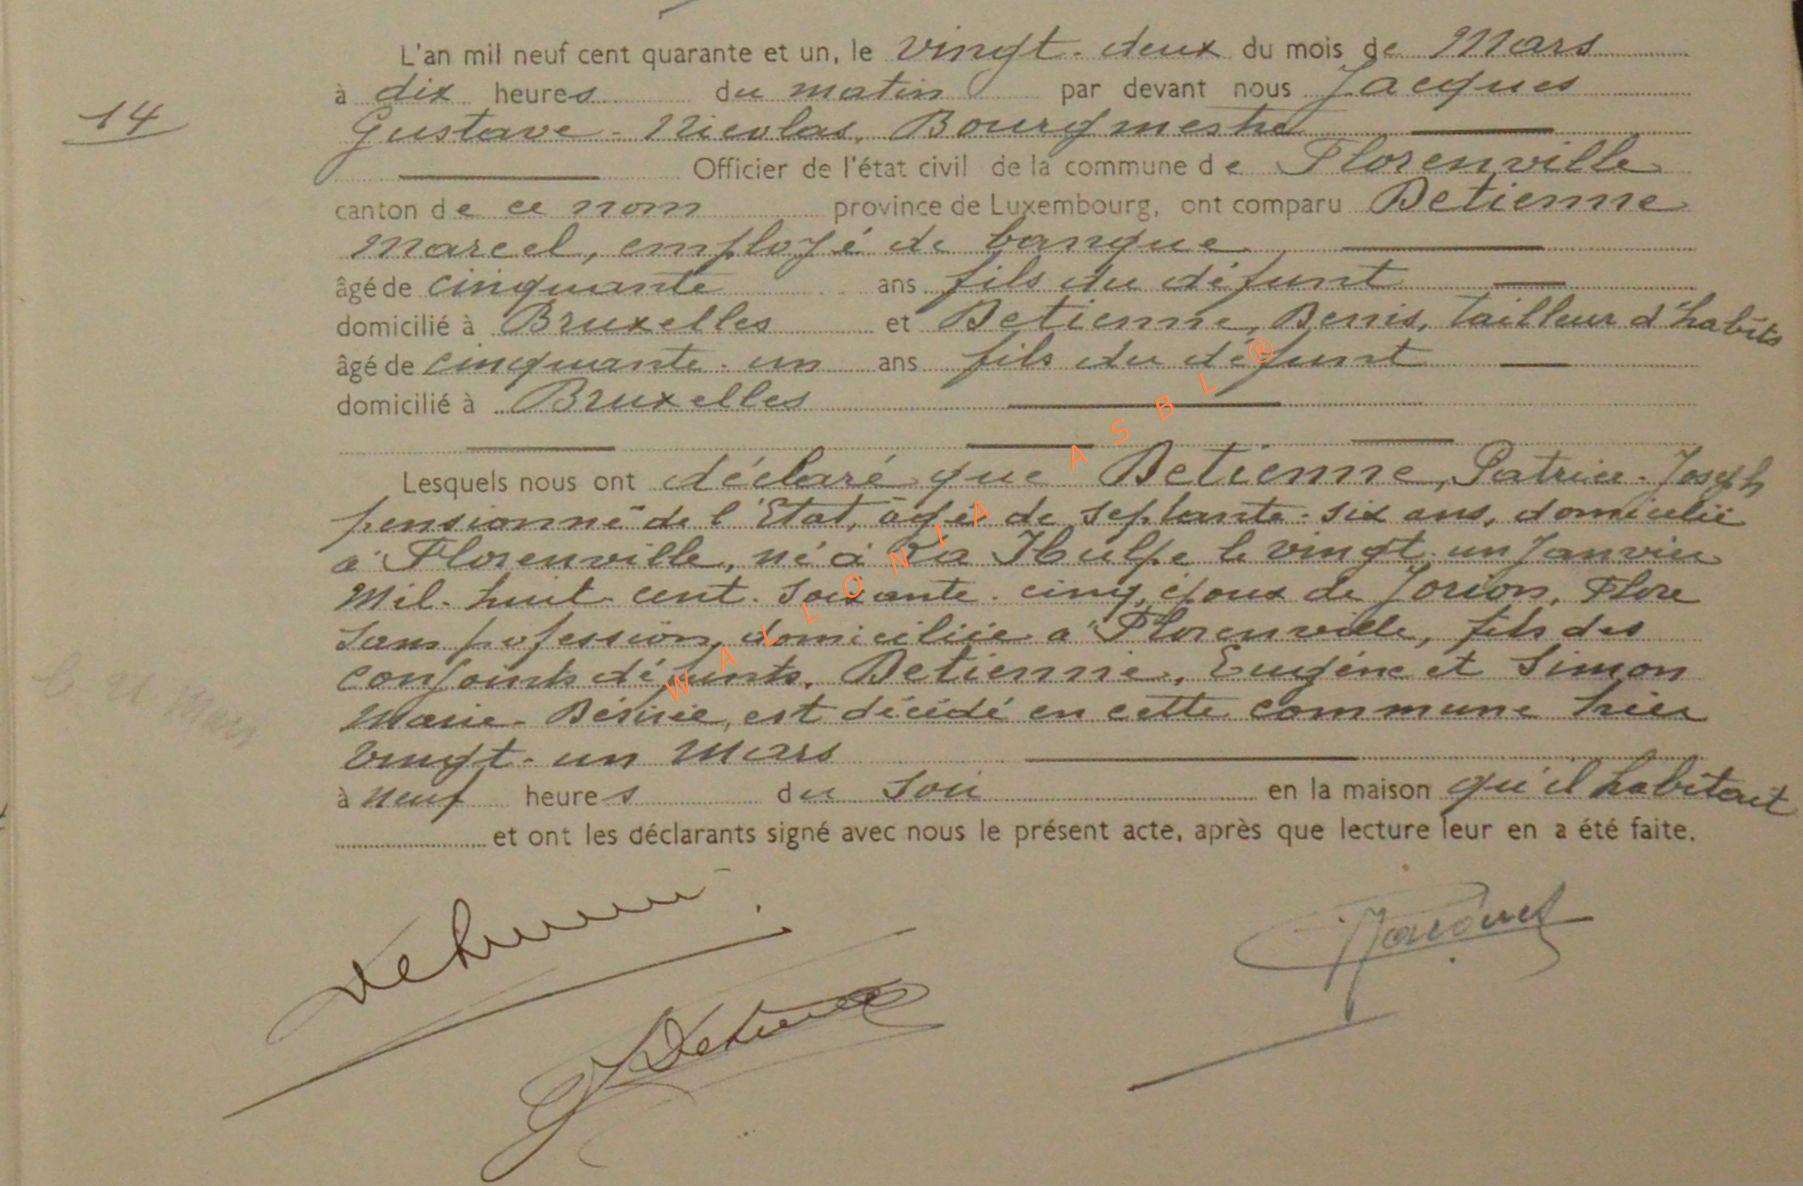 L'an mil neuf cent quarante et un, le vingt-deux du mois de Mars
14
à dix heures du matin par devant nous Jacques
Gustave-Nicolas, Bourgmestre
Officier de l'état civil de la commune de Florenville
canton de ce nom province de Luxembourg, ont comparu Detienne
Marcel, employé de banque
âgé de cinquante ans fils du défunt
domicilié à Bruxelles et Detienne, Denis, tailleur d'habits
âgé de cinquante-un ans fils du défunt
domicilié à Bruxelles
Lesquels nous ont déclaré que Detienne, Patrice-Joseph
pensionné de l'Etat, âgé de septante-six ans, domicilié
à Florenville, né à La Hulpe le vingt-un Janvier
Mil-huit-cent-soixante-cinq, époux de Jorion, Flore
sans profession, domiciliée à Florenville, fils des
conjoints défunts, Detienne, Eugène et Simon
Marie-Désirée, est décédé en cette commune hier
vingt-un Mars
le 21 Mars
à neuf heures du soir en la maison qu'il habitait
et ont les déclarants signé avec nous le présent acte, après que lecture leur en a été faite.
Jacques
Detienne
WALLONIA ASBL®